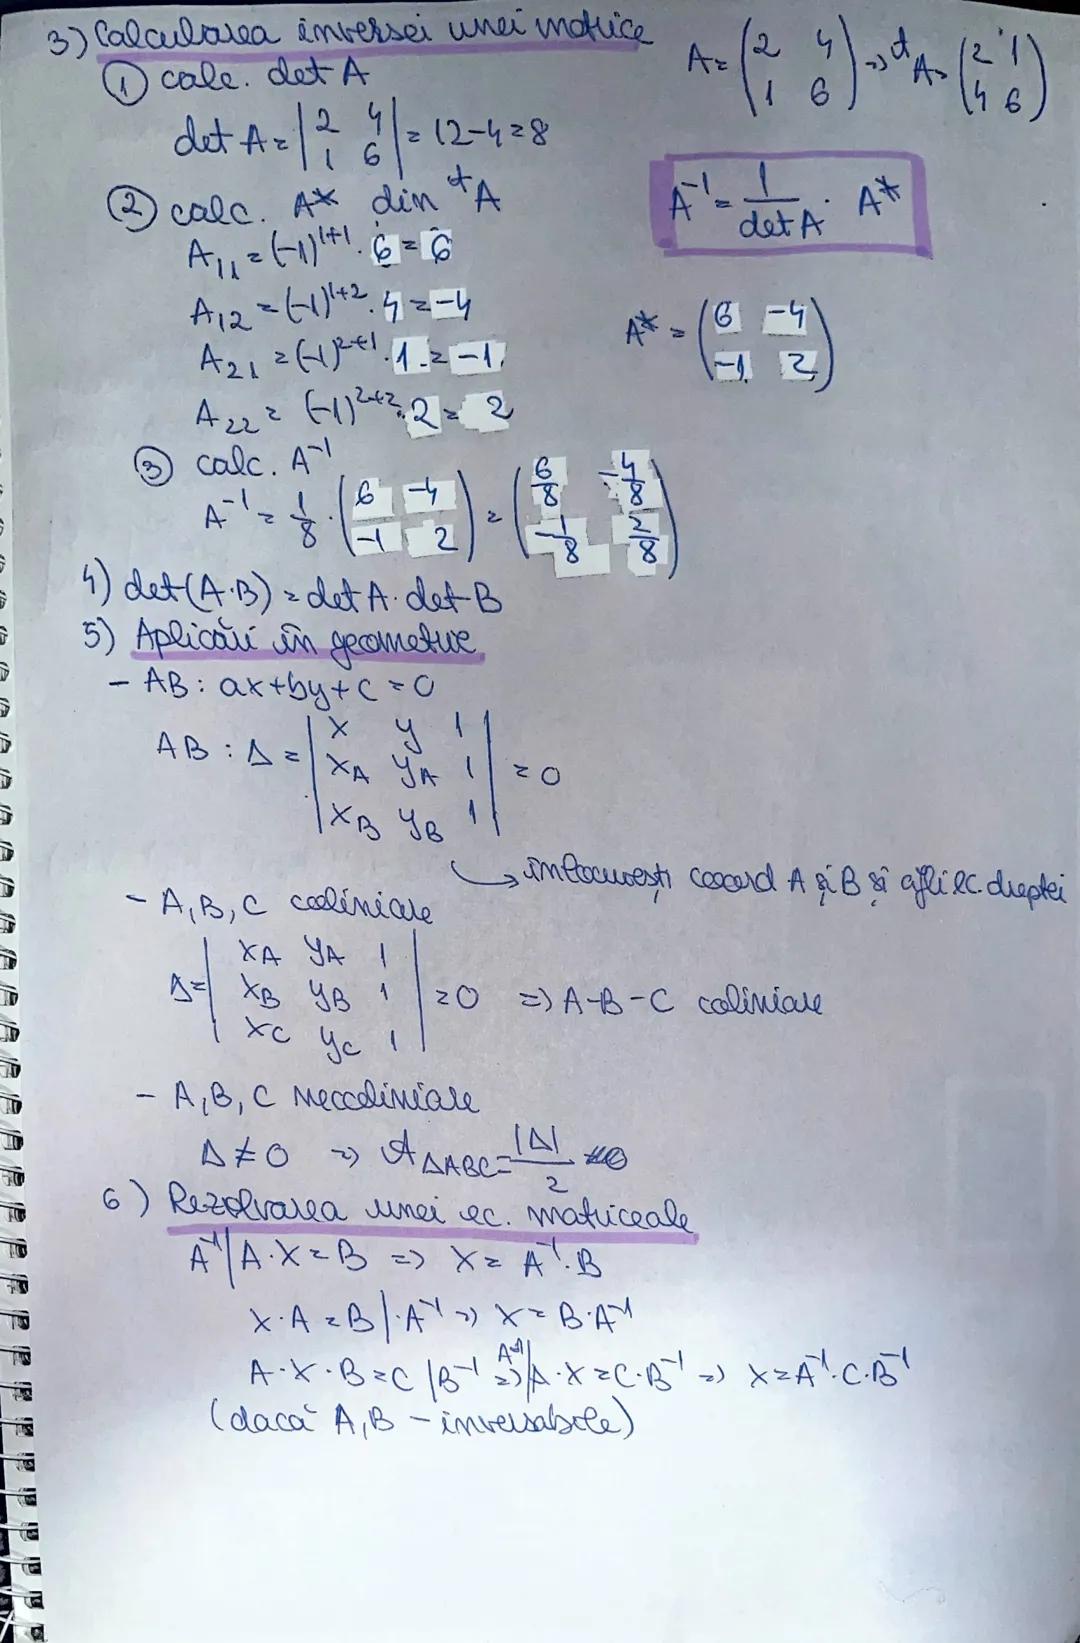 3) Calcularea inversei unei matrice
A = (2 4 / 1 6) => ᵗA = (2 1 / 4 6)
① calc. det A
det A = |2 4 / 1 6| = 12-4=8
② calc. A* din ᵗA
A⁻¹ = 1/det A · A*
A₁₁ = (-1)¹⁺¹ · 6 = 6
A₁₂ = (-1)¹⁺² · 4 = -4
A* = (6 -4 / -1 2)
A₂₁ = (-1)²⁺¹ · 1 = -1
A₂₂ = (-1)²⁺² · 2 = 2
③ calc. A⁻¹
A⁻¹ = 1/8 · (6 -4 / -1 2) = (6/8 -4/8 / -1/8 2/8)
4) det(A·B) = det A · det B
5) Aplicări în geometrie
- AB: ax+by+c=0
AB: Δ = |x y 1 / xA yA 1 / xB yB 1| = 0
↳ înlocuiești coord A și B și afli ec. dreptei
- A, B, C coliniare
Δ = |xA yA 1 / xB yB 1 / xC yC 1| = 0 => A-B-C coliniare
- A, B, C necoliniare
Δ ≠ 0 => A ΔABC = |Δ|/2
6) Rezolvarea unei ec. matriceale
A⁻¹| A·X=B => X = A⁻¹·B
X·A = B |·A⁻¹ => X = B·A⁻¹
A·X·B=C |B⁻¹ => A⁻¹| A·X=C·B⁻¹ => X=A⁻¹·C·B⁻¹
(dacă A, B - inversabile)